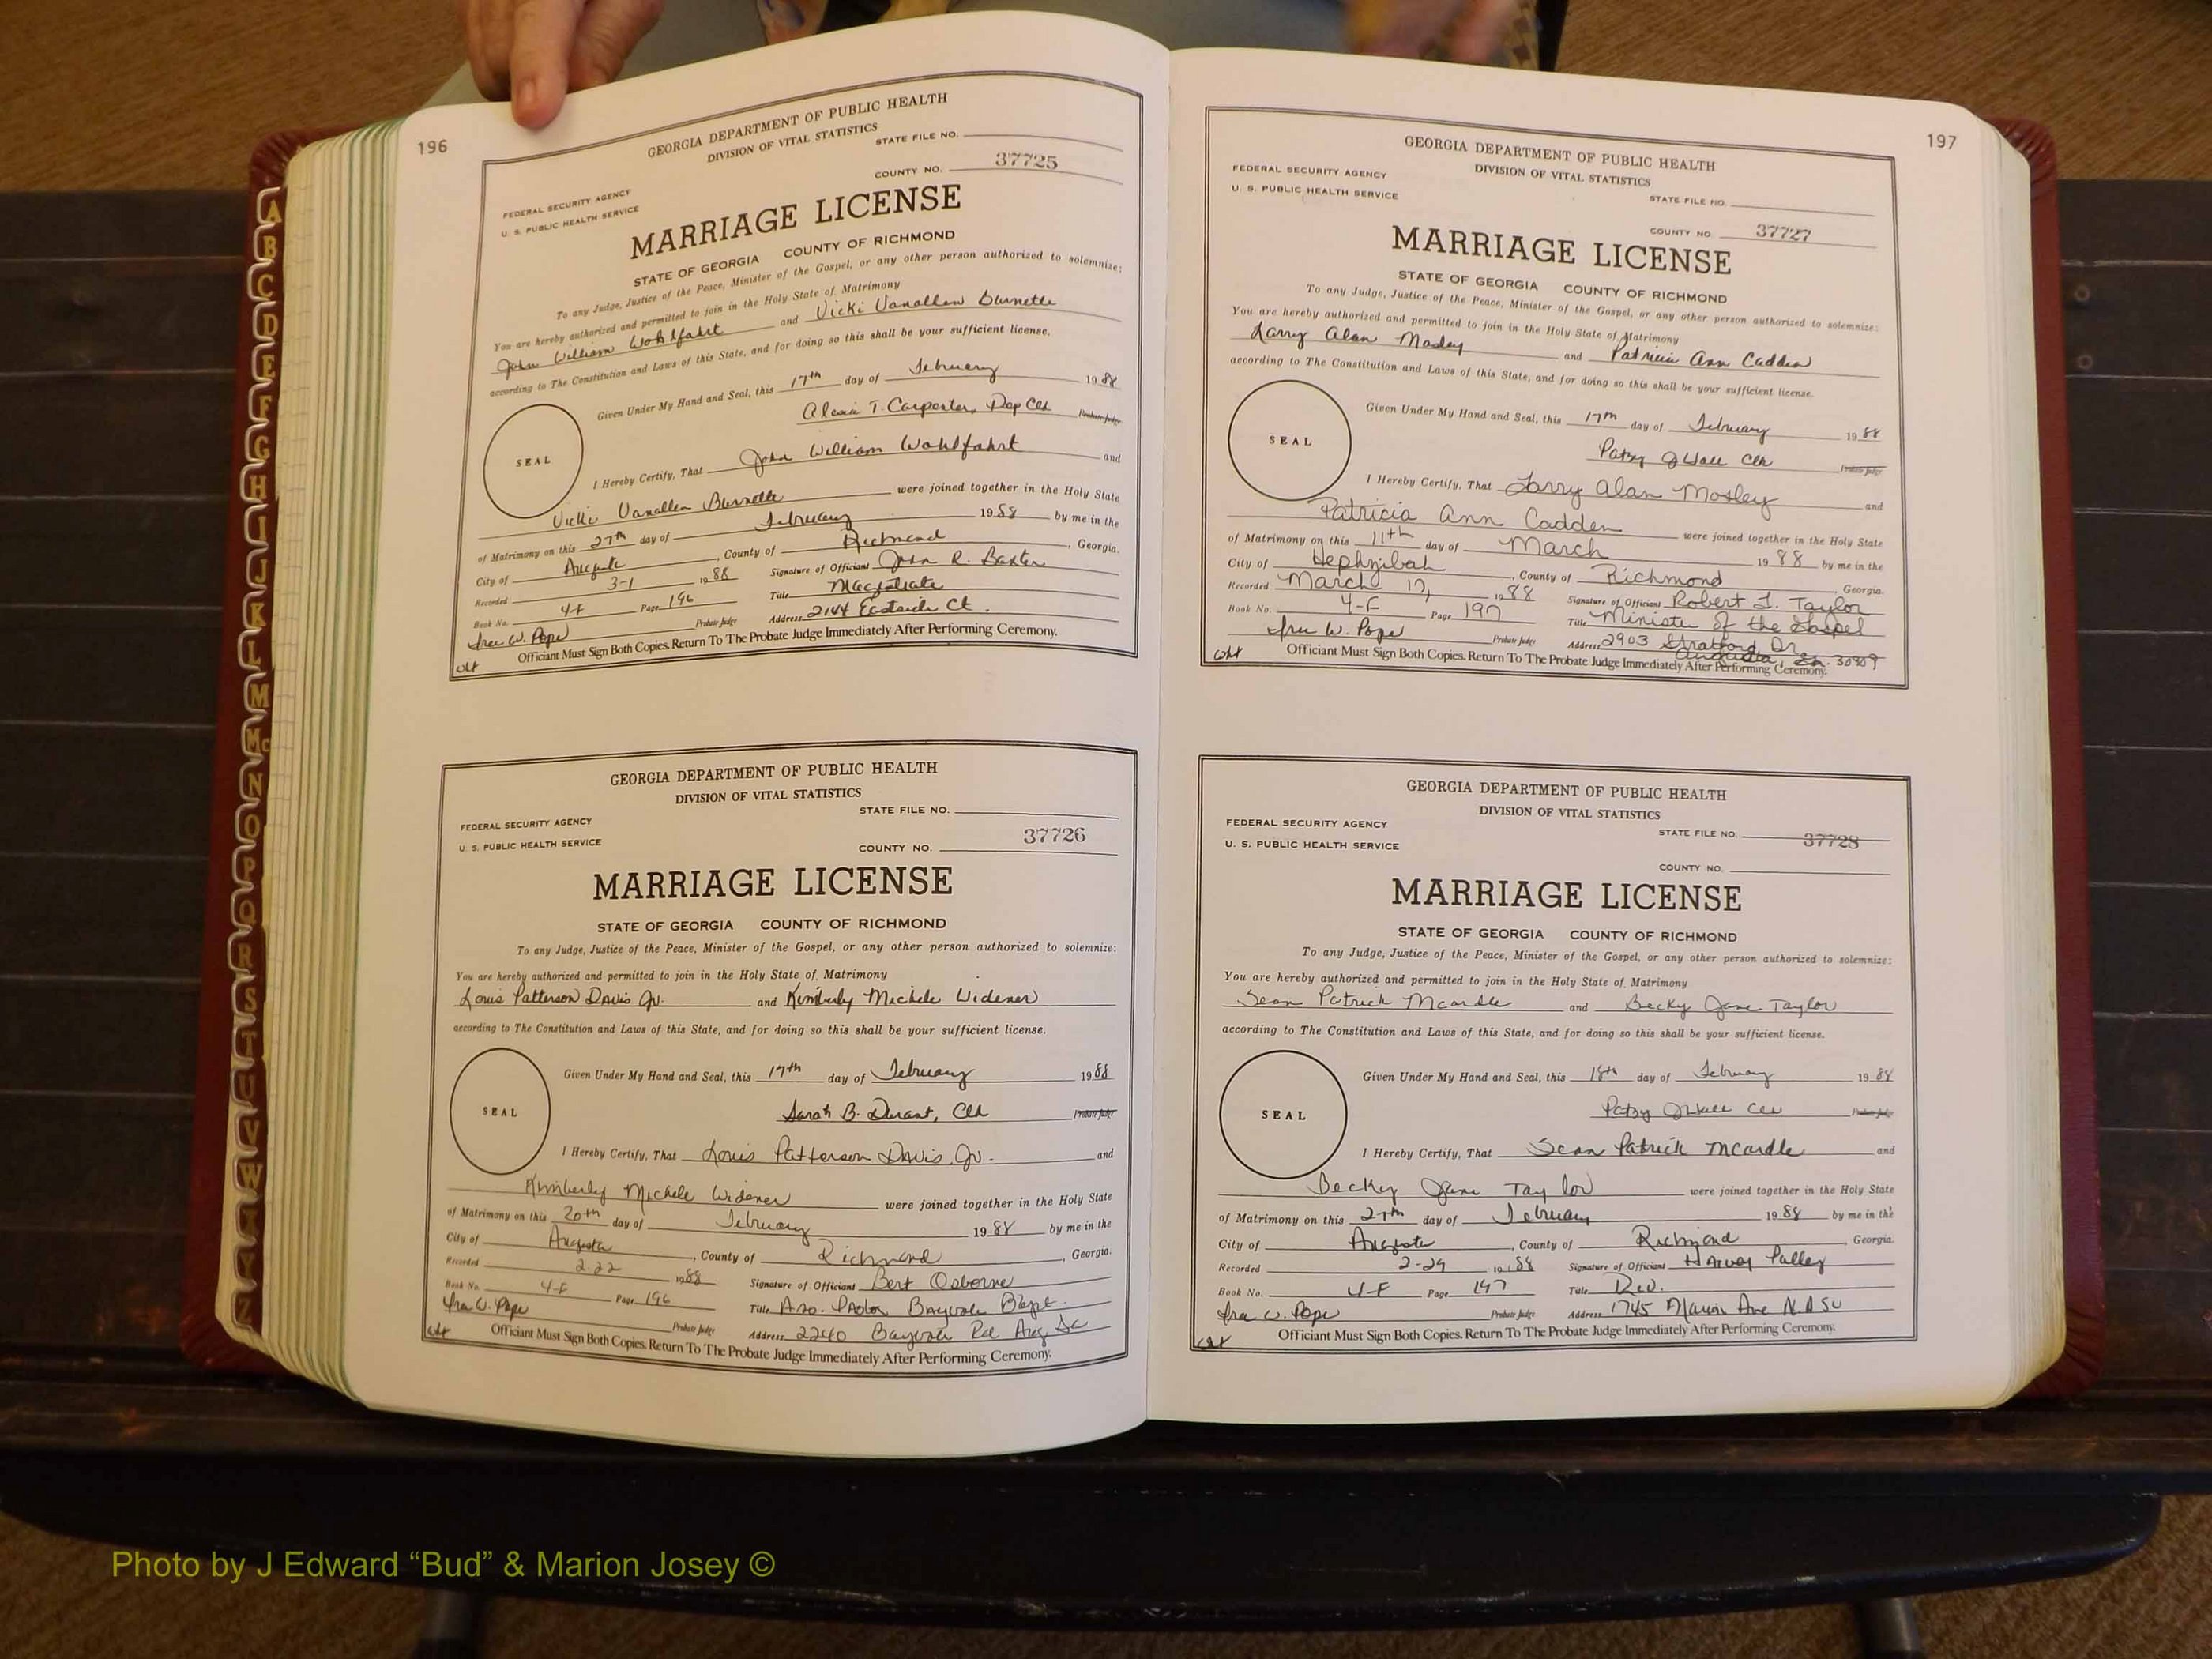 196
GEORGIA DEPARTMENT OF PUBLIC HEALTH
DIVISION OF VITAL STATISTICS
STATE FILE NO.
COUNTY NO. 37725
FEDERAL SECURITY AGENCY
U. S. PUBLIC HEALTH SERVICE
MARRIAGE LICENSE
STATE OF GEORGIA COUNTY OF RICHMOND
To any Judge, Justice of the Peace, Minister of the Gospel, or any other person authorized to solemnize:
You are hereby authorized and permitted to join in the Holy State of Matrimony
John William Wohlfahrt and Vicki Vanallen Burnette
according to The Constitution and Laws of this State, and for doing so this shall be your sufficient license.
Given Under My Hand and Seal, this 17th day of February 1988
Alexia T. Carpenter, Dep Clk Probate Judge
SEAL
I Hereby Certify, That John William Wohlfahrt and
Vicki Vanallen Burnette were joined together in the Holy State
of Matrimony on this 27th day of February 1988 by me in the
City of Augusta, County of Richmond, Georgia.
Recorded 3-1 1988 Signature of Officiant John R. Baxter
Book No. 4-F Page 196 Title Magistrate
Ira W. Pope Probate Judge Address 2144 Eastside Ct.
Officiant Must Sign Both Copies. Return To The Probate Judge Immediately After Performing Ceremony.
GEORGIA DEPARTMENT OF PUBLIC HEALTH
DIVISION OF VITAL STATISTICS
STATE FILE NO.
FEDERAL SECURITY AGENCY
U. S. PUBLIC HEALTH SERVICE
COUNTY NO. 37726
MARRIAGE LICENSE
STATE OF GEORGIA COUNTY OF RICHMOND
To any Judge, Justice of the Peace, Minister of the Gospel, or any other person authorized to solemnize:
You are hereby authorized and permitted to join in the Holy State of Matrimony
Louis Patterson Davis Jr. and Kimberly Michele Widener
according to The Constitution and Laws of this State, and for doing so this shall be your sufficient license.
Given Under My Hand and Seal, this 17th day of February 1988
Sarah B. Durant, Clk Probate Judge
SEAL
I Hereby Certify, That Louis Patterson Davis Jr. and
Kimberly Michele Widener were joined together in the Holy State
of Matrimony on this 20th day of February 1988 by me in the
City of Augusta, County of Richmond, Georgia.
Recorded 2-22 1988 Signature of Officiant Bert Osborne
Book No. 4-F Page 196 Title Aso. Pastor Bayvale Bapt.
Ira W. Pope Probate Judge Address 2240 Bayvale Rd Aug
Officiant Must Sign Both Copies. Return To The Probate Judge Immediately After Performing Ceremony.
197
GEORGIA DEPARTMENT OF PUBLIC HEALTH
DIVISION OF VITAL STATISTICS
FEDERAL SECURITY AGENCY
U. S. PUBLIC HEALTH SERVICE
STATE FILE NO.
COUNTY NO. 37727
MARRIAGE LICENSE
STATE OF GEORGIA COUNTY OF RICHMOND
To any Judge, Justice of the Peace, Minister of the Gospel, or any other person authorized to solemnize:
You are hereby authorized and permitted to join in the Holy State of Matrimony
Larry Alan Mosley and Patricia Ann Cadden
according to The Constitution and Laws of this State, and for doing so this shall be your sufficient license.
Given Under My Hand and Seal, this 17th day of February 1988
Patsy J Hall Clk Probate Judge
SEAL
I Hereby Certify, That Larry Alan Mosley and
Patricia Ann Cadden were joined together in the Holy State
of Matrimony on this 11th day of March 1988 by me in the
City of Hephzibah, County of Richmond, Georgia.
Recorded March 17, 1988 Signature of Officiant Robert L. Taylor
Book No. 4-F Page 197 Title Minister of the Gospel
Ira W. Pope Probate Judge Address 2903 Stratford Dr
Augusta, Ga. 30909
Officiant Must Sign Both Copies. Return To The Probate Judge Immediately After Performing Ceremony.
GEORGIA DEPARTMENT OF PUBLIC HEALTH
DIVISION OF VITAL STATISTICS
FEDERAL SECURITY AGENCY
U. S. PUBLIC HEALTH SERVICE
STATE FILE NO. 37728
COUNTY NO.
MARRIAGE LICENSE
STATE OF GEORGIA COUNTY OF RICHMOND
To any Judge, Justice of the Peace, Minister of the Gospel, or any other person authorized to solemnize:
You are hereby authorized and permitted to join in the Holy State of Matrimony
Sean Patrick Mcardle and Becky Jane Taylor
according to The Constitution and Laws of this State, and for doing so this shall be your sufficient license.
Given Under My Hand and Seal, this 18th day of February 1988
Patsy J Hall Clk Probate Judge
SEAL
I Hereby Certify, That Sean Patrick Mcardle and
Becky Jane Taylor were joined together in the Holy State
of Matrimony on this 27th day of February 1988 by me in the
City of Augusta, County of Richmond Georgia.
Recorded 2-29 1988 Signature of Officiant Harvey Pulley
Book No. 4-F Page 197 Title Rev.
Ira W. Pope Probate Judge Address 1745 Ave
Officiant Must Sign Both Copies. Return To The Probate Judge Immediately After Performing Ceremony.
A
B
C
D
E
F
G
H
I
J
K
L
M
Mc
N
O
P
Q
R
S
T
U
V
W
X
Y
Z
Photo by J Edward “Bud” & Marion Josey ©